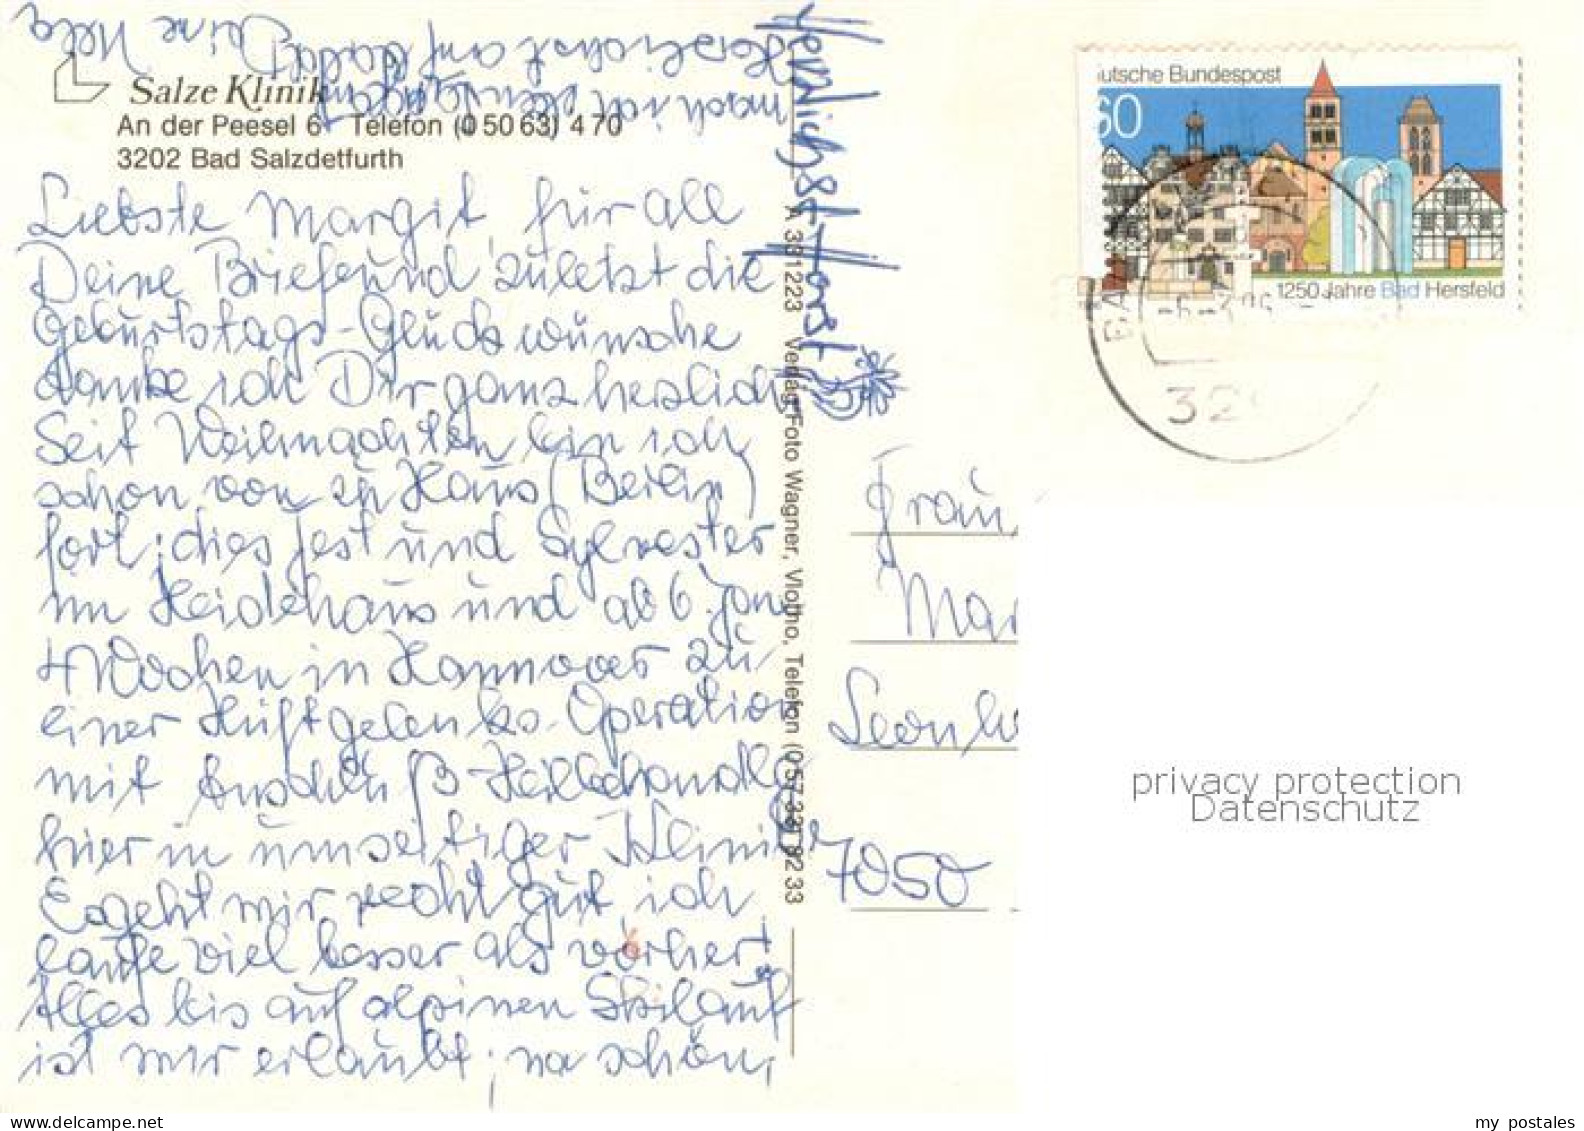 Salze Klinik
An der Peesel 6 Telefon (0 50 63) 4 70
3202 Bad Salzdetfurth
Liebste Margit, für all
Deine Briefe und zuletzt die
Geburtstags-Glückwünsche
danke ich Dir ganz herzlich
Seit Weihnachten bin ich
schon von zu Haus (Berlin)
fort; dies Fest und Sylvester
im Heidehaus und ab 6. Jan.
4 Wochen in Hannover zu
einer Hüftgelenks-Operation
mit Anschluß-Heilbehandlg
hier in umseitiger Klinik
Es geht mir recht gut, ich
laufe viel besser als vorher!
Alles bis auf alpinen Skilauf
ist mir erlaubt; na schön,
mach ich eben Langlauf
Herzlichst auf bald!
Deine Hella
Herzlichst Horst
A 381 223 Verlag Foto Wagner, Vlotho, Telefon (0 57 33) 92 33
utsche Bundespost
60
1250 Jahre Bad Hersfeld
BA
32
Frau
Mar
Leonh
7050
privacy protection
Datenschutz
my postales